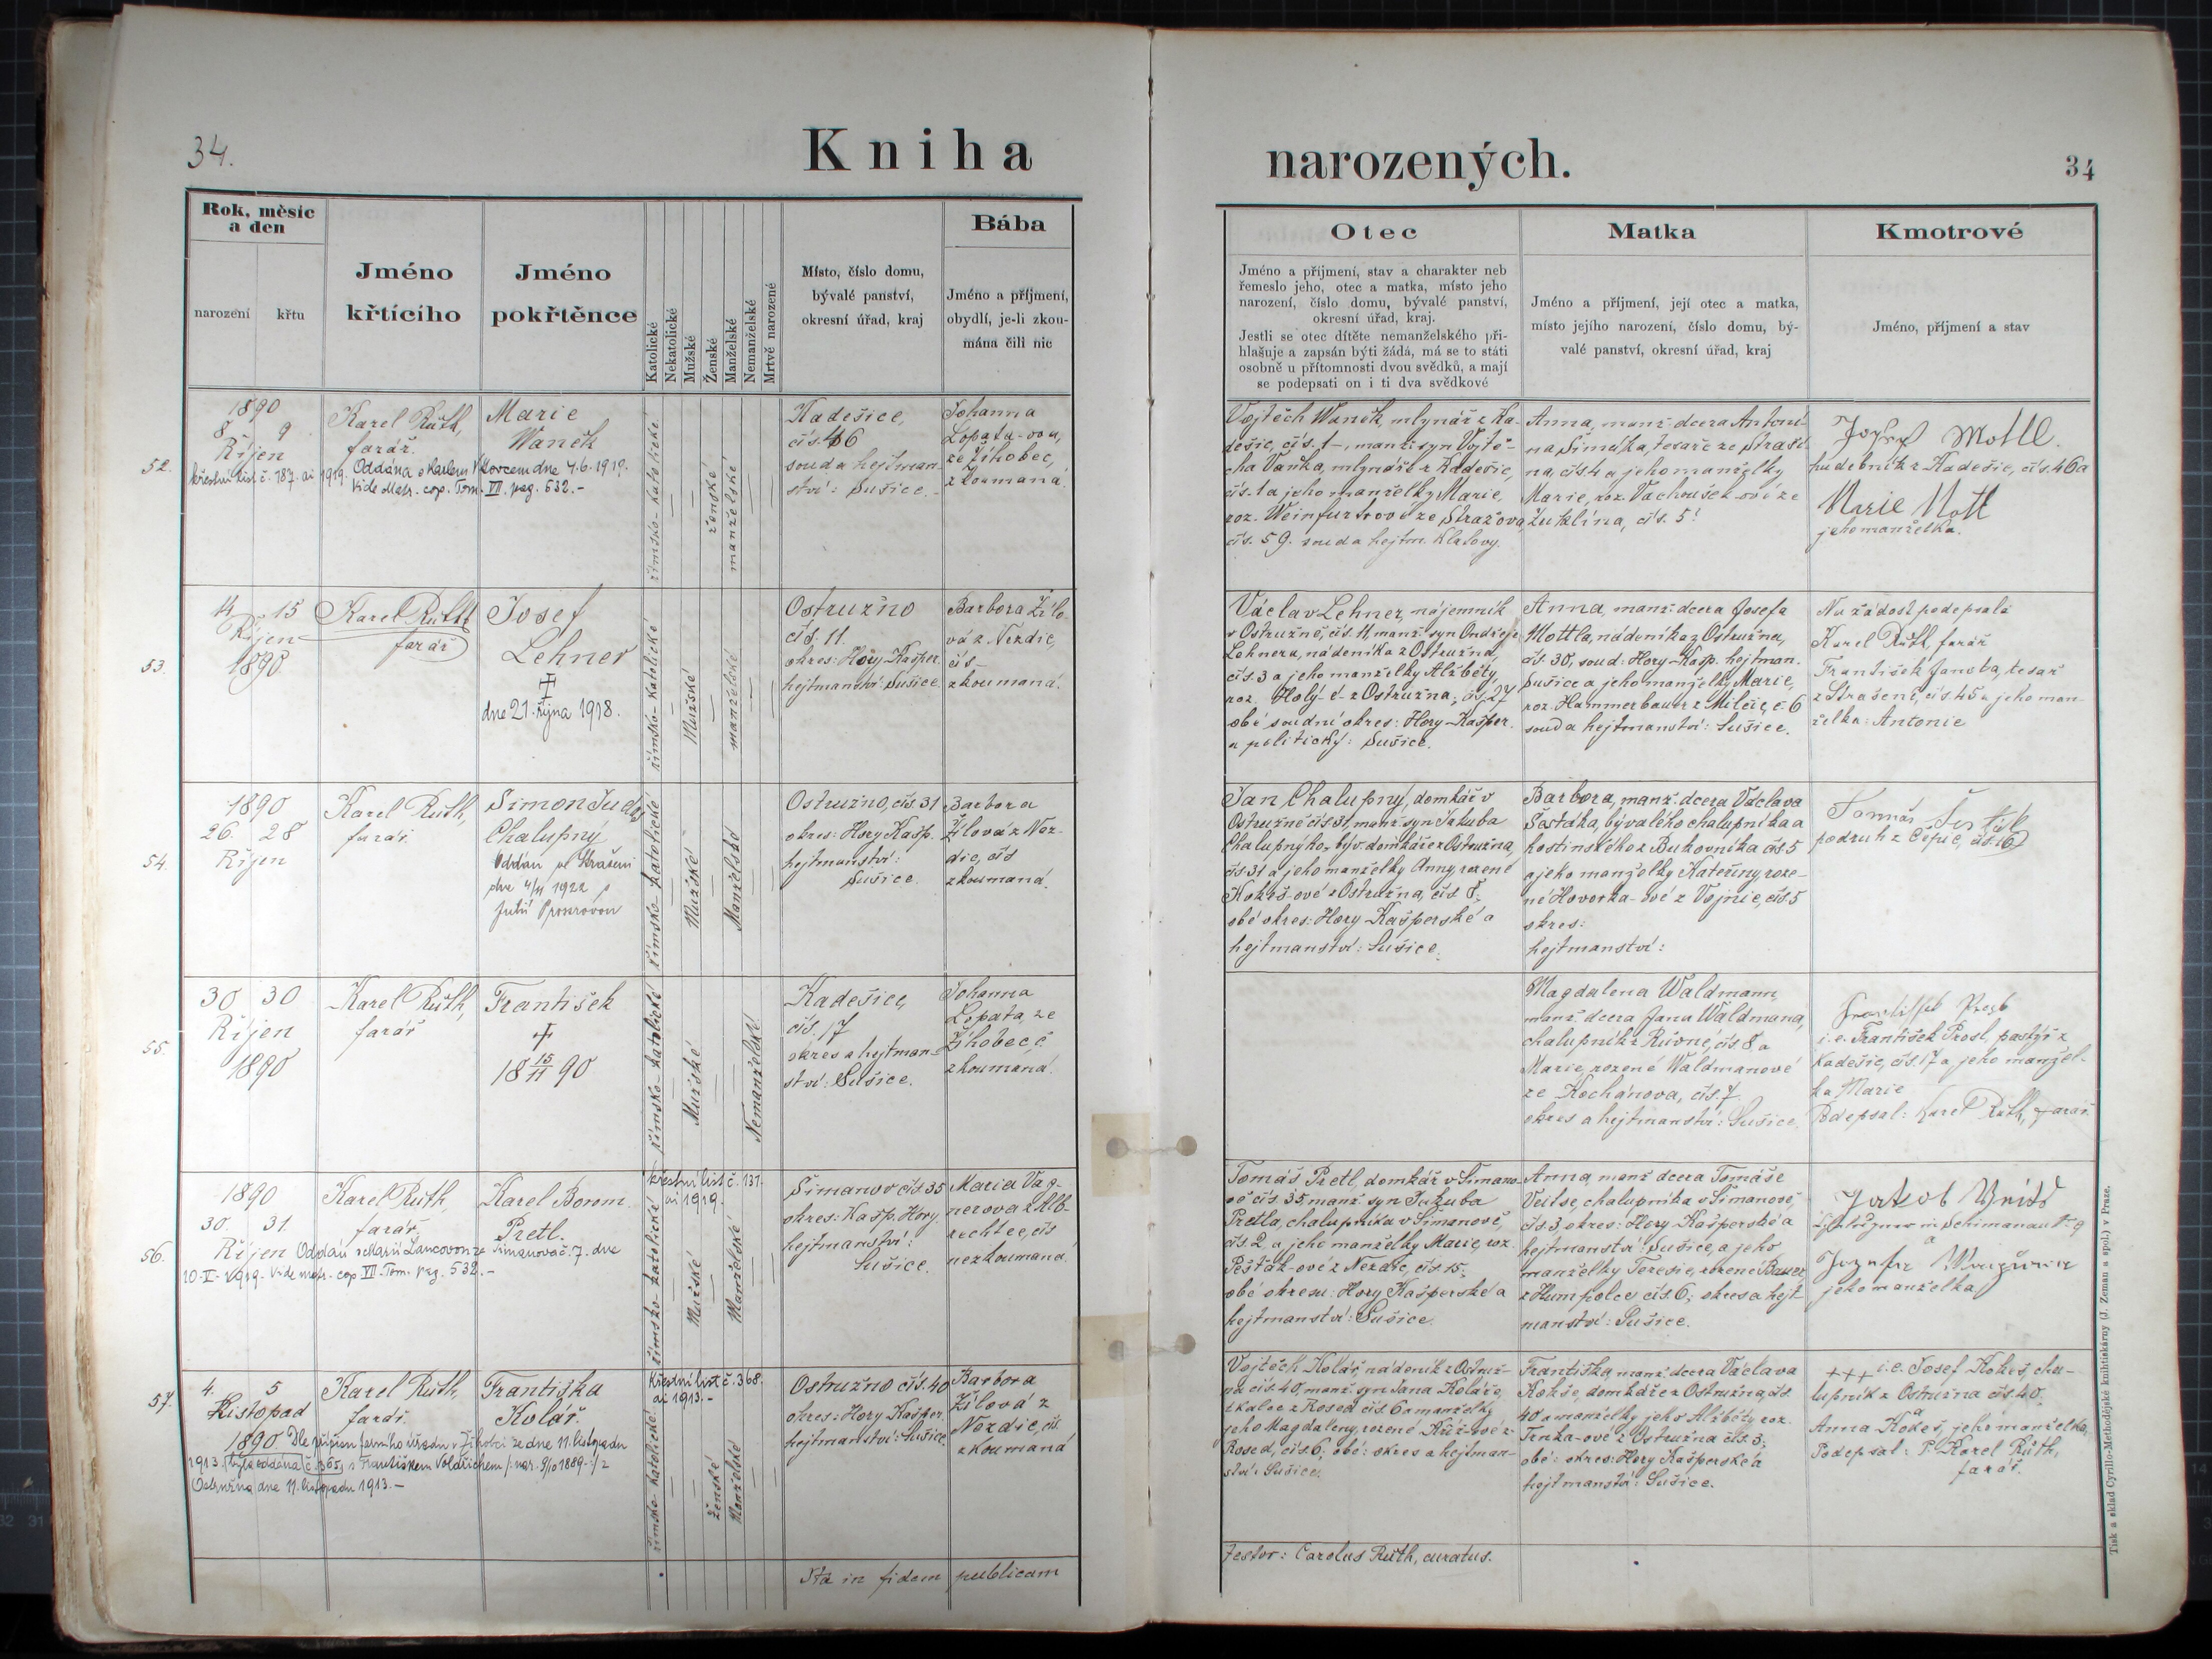 34.
Kniha
narozených.
34
Rok, měsíc
a den
narození
křtu
Jméno
křtícího
Jméno
pokřtěnce
Katolické
Nekatolické
Mužské
Ženské
Manželské
Nemanželské
Mrtvě narozené
Místo, číslo domu,
bývalé panství,
okresní úřad, kraj
Bába
Jméno a příjmení,
obydlí, je-li zkou-
mána čili nic
Otec
Jméno a příjmení, stav a charakter neb
řemeslo jeho, otec a matka, místo jeho
narození, číslo domu, bývalé panství,
okresní úřad, kraj.
Jestli se otec dítěte nemanželského při-
hlašuje a zapsán býti žádá, má se to státi
osobně u přítomnosti dvou svědků, a mají
se podepsati on i ti dva svědkové
Matka
Jméno a příjmení, její otec a matka,
místo jejího narození, číslo domu, bý-
valé panství, okresní úřad, kraj
Kmotrové
Jméno, příjmení a stav
52.
1890
8 9
Říjen
Karel Růth,
farář.
Marie
Waněk
křestní list č. 187. ai 1919. Oddána s Karlem dne 4.6.1919.
Vide Matr. cop. Tom. VII. pag. 532.-
římsko-katolické
ženské
manželské
Kadešice,
čís. 46
soud a hejtman-
ství: Sušice.
Johanna
Lopata-ova,
ze Žíhobec,
zkoumaná.
Vojtěch Waněk, mlynář z Ka-
dešic, čís. 1-, manž. syn Vojtě-
cha Vaňka, mlynáře z Kadešic,
čís. 1 a jeho manželky Marie,
roz. Weinfurtrové ze Strážova,
čís. 59. soud a hejtm. Klatovy.
Anna, manž. dcera Antoní-
na Šimáka, tesaře ze Straší-
na, čís. 4 a jeho manželky
Marie, roz. Vachoušek-ové ze
Žuklína, čís. 5.
Josef Mottl.
hudebník z Kadešic, čís. 46 a
Marie Mottl
jeho manželka.
53.
14 15
Říjen
1890.
Karel Růth
farář
Josef
Lehner
†
dne 21. října 1918.
římsko-katolické
Mužské
manželské
Ostružno
čís. 11.
okres: Hory Kašper.
hejtmanství Sušice.
Barbora Žílo-
vá z Nezdic,
čís -
zkoumaná.
Václav Lehner, nájemník
v Ostružně, čís. 11, manž. syn Ondřeje
Lehnera, nádeníka z Ostružna,
čís. 3 a jeho manželky Alžběty,
roz. Holý-é z Ostružna, čís. 27
obé soudní okres: Hory-Kašper.
a politický: Sušice.
Anna, manž. dcera Josefa
Mottla, nádeníka z Ostružna,
čís. 30, soud: Hory-Kašp. hejtman.
Sušice a jeho manželky Marie,
roz. Hammerbauer z Milčic, č. 6
soud a hejtmanství: Sušice.
Na žádost podepsali
Karel Růth, farář
František Janota, tesař
z Strašeně, čís. 45 a jeho man-
želka: Antonie
54.
1890
26. 28
Říjen
Karel Růth,
farář.
Šimon Juda
Chalupný
Oddán ve Strašíni
dne 4/4 1922 s
římsko-katolické
Mužské
Manželské
Ostružno, čís. 31
okres: Hory Kašp.
hejtmanství:
Sušice.
Barbora
Žílová z Nez-
dic, čís
zkoumaná.
Jan Chalupný, domkář v
Ostružně čís. 31, manž. syn Jakuba
Chalupného, býv. domkáře z Ostružna,
čís. 31 a jeho manželky Anny, rozené
Kokeš-ové z Ostružna, čís. 8;
obé okres: Hory Kašperské a
hejtmanství: Sušice.
Barbora, manž. dcera Václava
Šestáka, bývalého chalupníka a
hostinského z Bukovníka čís. 5
a jeho manželky Kateřiny, roze-
né Hovorka-ové z Vojnic, čís. 5
okres:
hejtmanství:
Tomáš
podruh z Čepic, čís. 16
55.
30 30
Říjen
1890
Karel Růth,
farář
František
†
18 15/11 90
římsko-katolické
Mužské
Nemanželské
Kadešice,
čís. 17
okres a hejtman-
ství: Sušice.
Johanna
Lopata, ze
Žíhobec č.
zkoumaná.
Magdalena Waldmann,
manž. dcera Jana Waldmana,
chalupník z Rovné, čís. 8 a
Marie, rozené Waldmanové
ze Kochánova, čís. 7.
okres a hejtmanství: Sušice.
i. e. František Presl, pastýř z
Kadešic, čís. 17 a jeho manžel-
ka Marie
Podepsal: Karel Růth, farář.
56.
1890
30. 31.
Říjen
Karel Růth,
farář.
Karel Borom.
Pretl.
Oddán s Marií Lancovou ze Simanova č. 7. dne
10-II-1919. Vide matr. cop VII. Tom. pag. 532.-
křestní list č. 131.
ai 1919.-
římsko-katolické
Mužské
Manželské
Šimanov čís. 35
okres: Kašp. Hory.
hejtmanství:
Sušice.
Maria Vag-
nerova z Alb-
rechtec, čís
nezkoumaná.
Tomáš Pretl, domkář v Šimano-
vě čís. 35 manž. syn Jakuba
Pretla, chalupníka v Šimanově,
čís. 2, a jeho manželky Marie, roz.
Pešťák-ové z Nezdic, čís. 15;
obé okresu: Hory Kašperské a
hejtmanství: Sušice.
Anna, manž. dcera Tomáše
Veitse, chalupníka v Šimanově,
čís. 3 okres: Hory Kašperské a
hejtmanství: Sušice, a jeho
manželky Terezie, rozené Bauer
z Humpolce čís. 6; okres a hejt-
manství: Sušice.
Jakob
in Schimanau N. 9
a
jeho manželka
57.
4. 5
Listopad
1890
Karel Růth,
farář.
Františka
Kolář.
Dle přípisu farního úřadu v Žihobci ze dne 11. listopadu
1913. byla oddána č. 365, s Františkem Voldřichem /: nar. 9/10 1889.:/ z
Ostružna dne 11. listopadu 1913.-
Křestní list č. 368.
ai 1913.-
římsko-katolické
ženské
Manželské
Ostružno čís. 40
okres: Hory Kašper.
hejtmanství: Sušice.
Barbora
Žílová z
Nezdic, čís.
zkoumaná
Vojtěch Kolář, nádeník z Ostruž-
na čís. 40, manž. syn Jana Koláře,
tkalce z Rosed čís. 6 a manželky
jeho Magdaleny, rozené Kříž-ové z
Rosed, čís. 6; obé: okres a hejtman-
ství: Sušice.
Františka, manž. dcera Václava
Kokše, domkáře z Ostružna, čís.
40 a manželky jeho Alžběty roz.
Trnka-ové z Ostružna čís. 3;
obé: okres: Hory Kašperské a
hejtmanství: Sušice.
+++ i. e. Josef Kokeš, cha-
lupník z Ostružna čís. 40.
a
Anna Kokeš, jeho manželka,
Podepsal: P. Karel Růth,
farář.
Ita in fidem publicam
testor: Carolus Růth, curatus.
Tisk a sklad Cyrillo-Methodějské knihtiskárny (J. Zeman a spol.) v Praze.